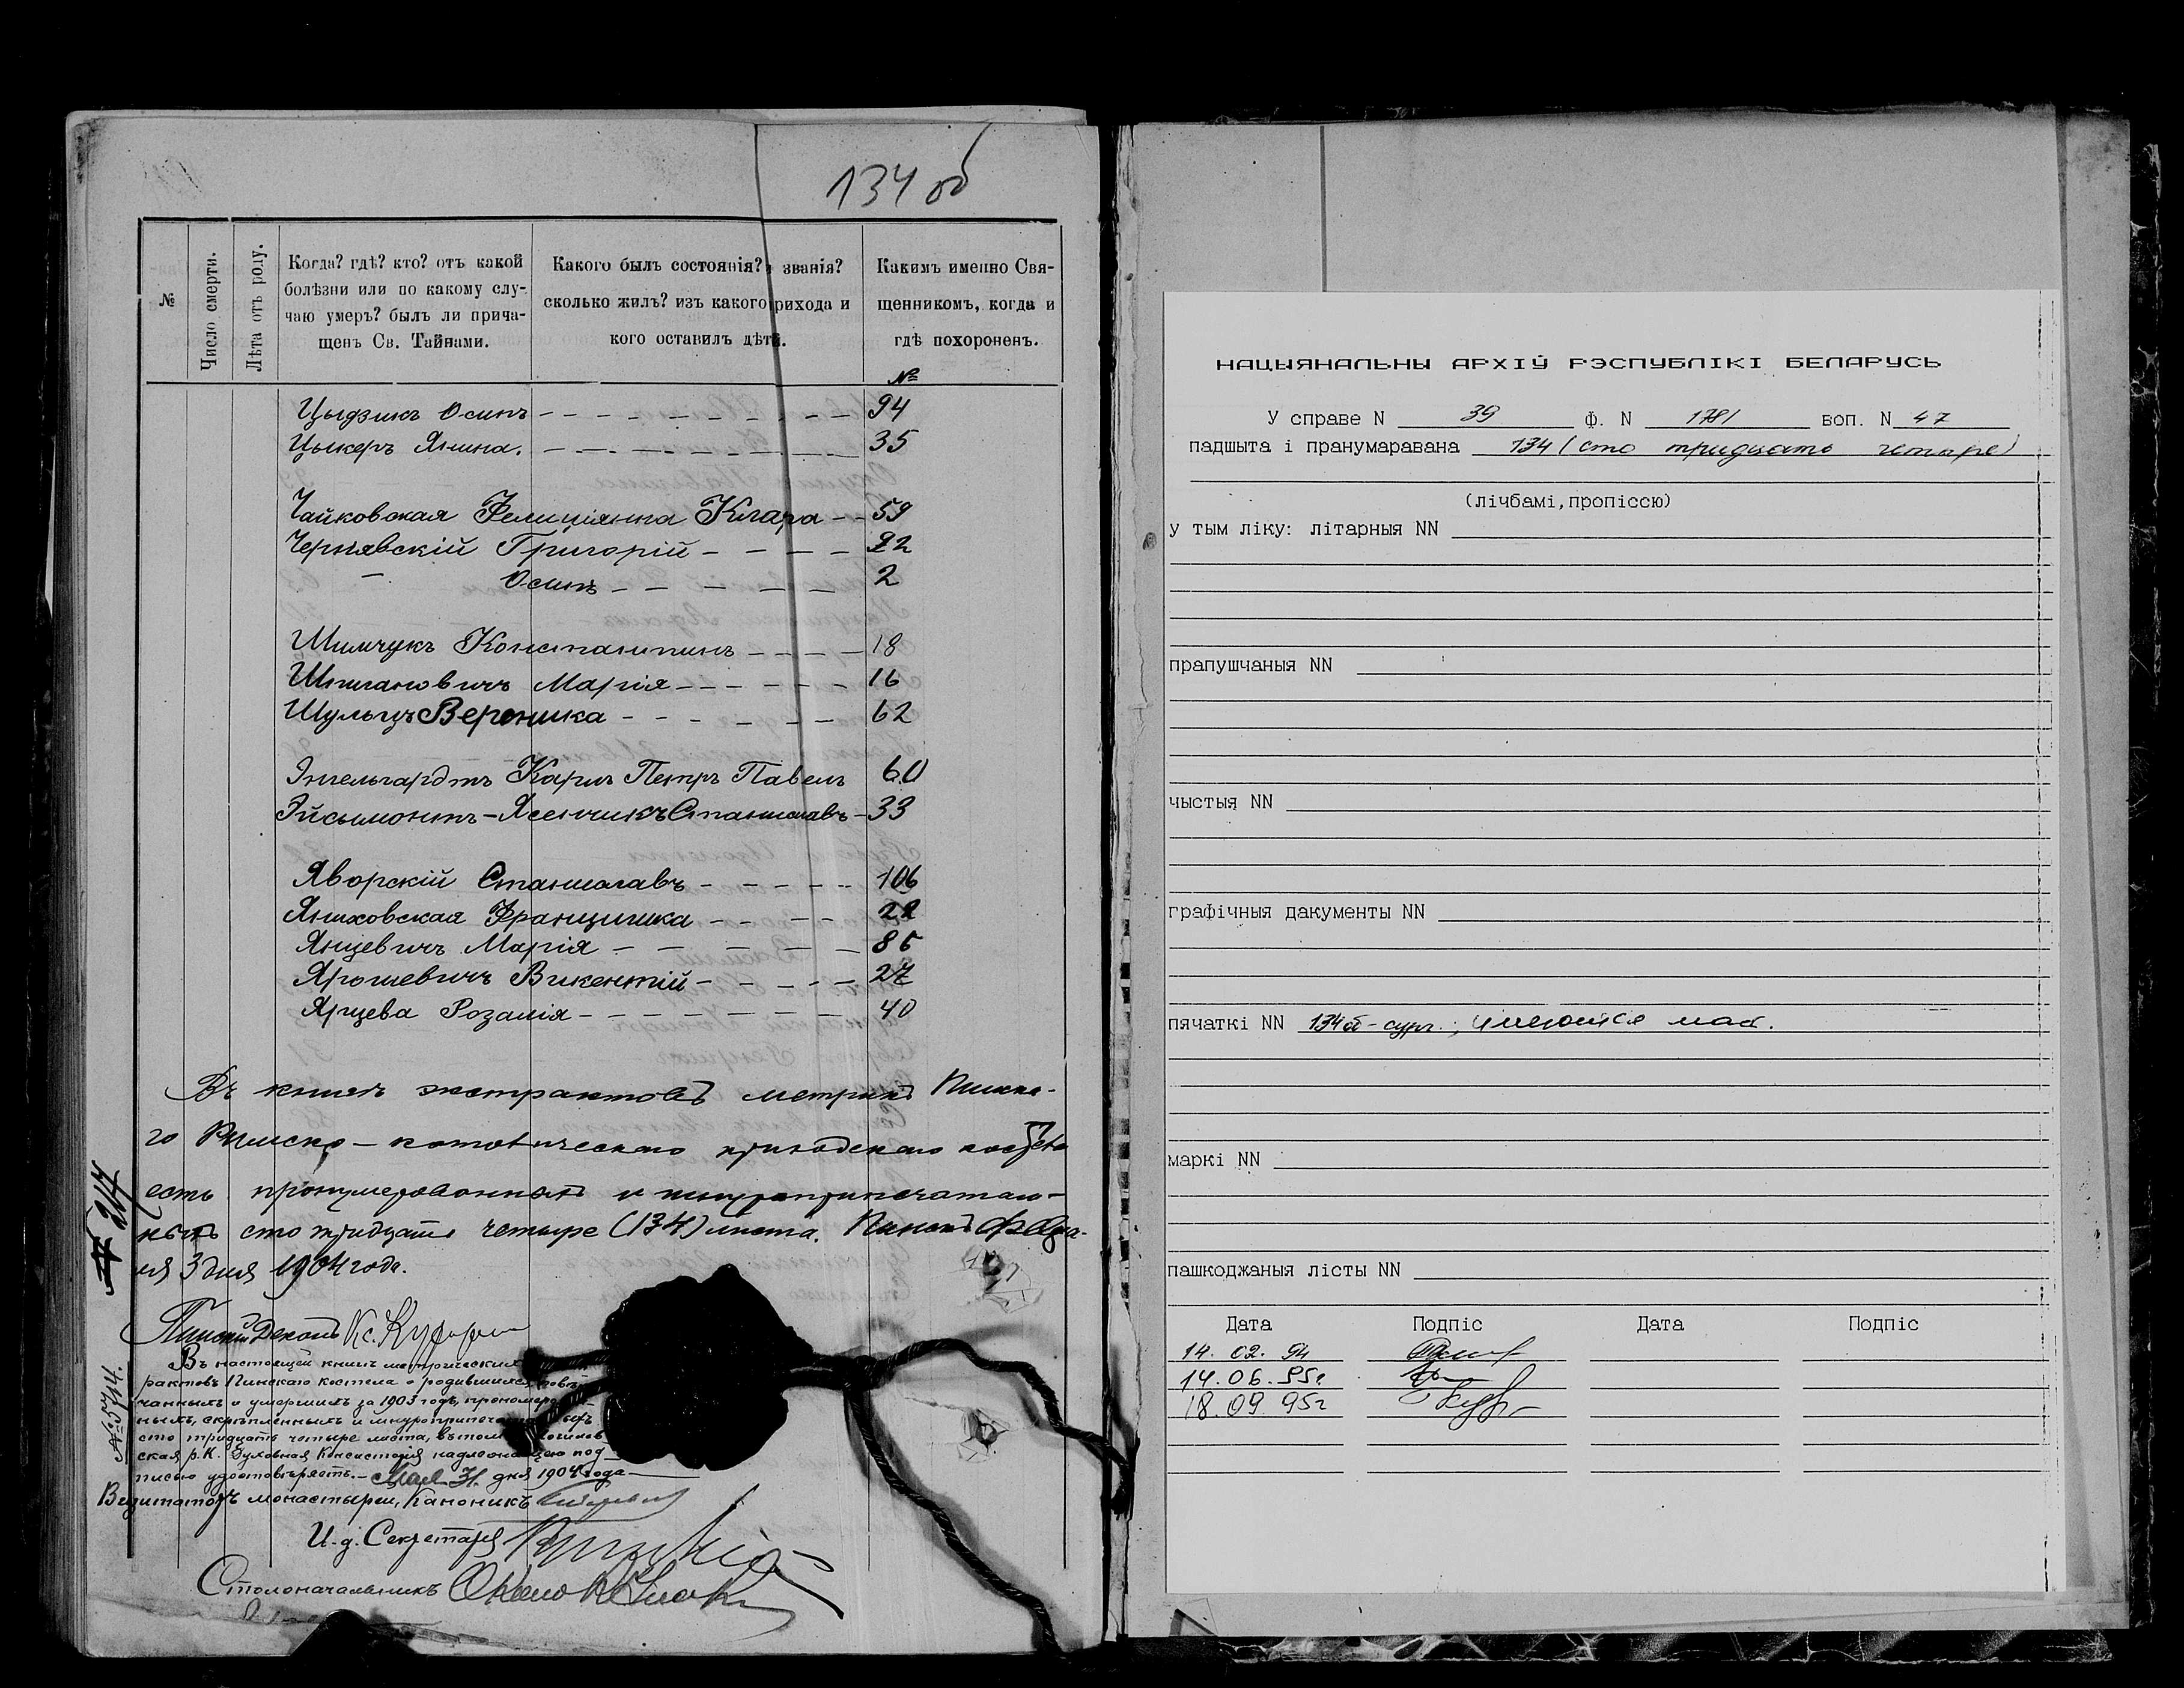 134 об
№
Число смерти.
Лѣта отъ роду.
Когда? гдѣ? кто? отъ какой
болѣзни или по какому слу-
чаю умеръ? былъ ли прича-
щенъ Св. Тайнами.
Какого былъ состоянія? званія?
сколько жилъ? изъ какого рихода и
кого оставилъ дѣтй.
Какимъ именно Свя-
щенникомъ, когда и
гдѣ похороненъ.
№
Цыдзикъ Осипъ 94
Цыкеръ Янина. 35
Чайковская Фелиціянна Клара 59
Чернявскій Григорій 22
" Осипъ 2
Шимчукъ Константинъ 18
Шпилановичъ Марія 16
Шульцъ Вероника 62
Энгельгардтъ Карлъ Петръ Павелъ 60
Эйсымонтъ-Ясенчикъ Станиславъ 33
Яворскій Станиславъ 106
Яниховская Францишка 22
Янцевичъ Марія 85
Ярошевичъ Викентій 27
Ярцева Розалія 40
Въ книгѣ экстрактовъ метрикъ Пинска-
го Римско-католическаго приходскаго костела
есть пронумерованныхъ и шнуроприпечатан-
ныхъ сто тридцать четыре (134) листа. Пинскъ Февра-
ля 3 дня 1904 года.
№ 217
Пинскій Деканъ Кс.
Въ настоящей книгѣ метрическихъ
рактовъ Пинскаго костела о родившихся, повѣн-
чанныхъ и умершихъ за 1903 годъ, прономеро
ныхъ, скрѣпленныхъ и шнуроприпеча ыхъ
сто тридцать четыре листа, въ томъ Могилев
ская р.К. Духовная Консисторія надлежащею под-
писью удостовѣряетъ.- Мая 31 дня 1904 года
№ 5714.
Визитаторъ монастырей, Каноникъ
И.д. Секретаря
Столоначальникъ
НАЦЫЯНАЛЬНЫ АРХІЎ РЭСПУБЛІКІ БЕЛАРУСЬ
У справе N 39 ф. N 1781 воп. N 47
падшыта і пранумаравана 134 (сто тридцать четыре)
(лічбамі,пропіссю)
у тым ліку: літарныя NN
прапушчаныя NN
чыстыя NN
графічныя дакументы NN
пячаткі NN 134об - сург., имеются мат.
маркі NN
пашкоджаныя лісты NN
Дата Подпіс Дата Подпіс
14. 02. 94
14. 06. 95г
18. 09. 95г